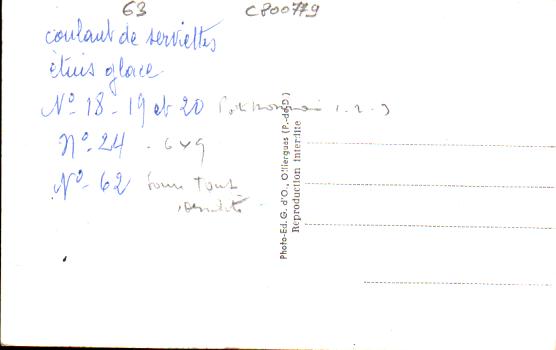 63 C800779
coulant de serviettes
étuis glace
N° 18 - 19 et 20
N° 24 - 6x9
N° 62 pour tout
Photo-Ed. G. d'O., Olliergues (P.-de-D.)
Reproduction Interdite